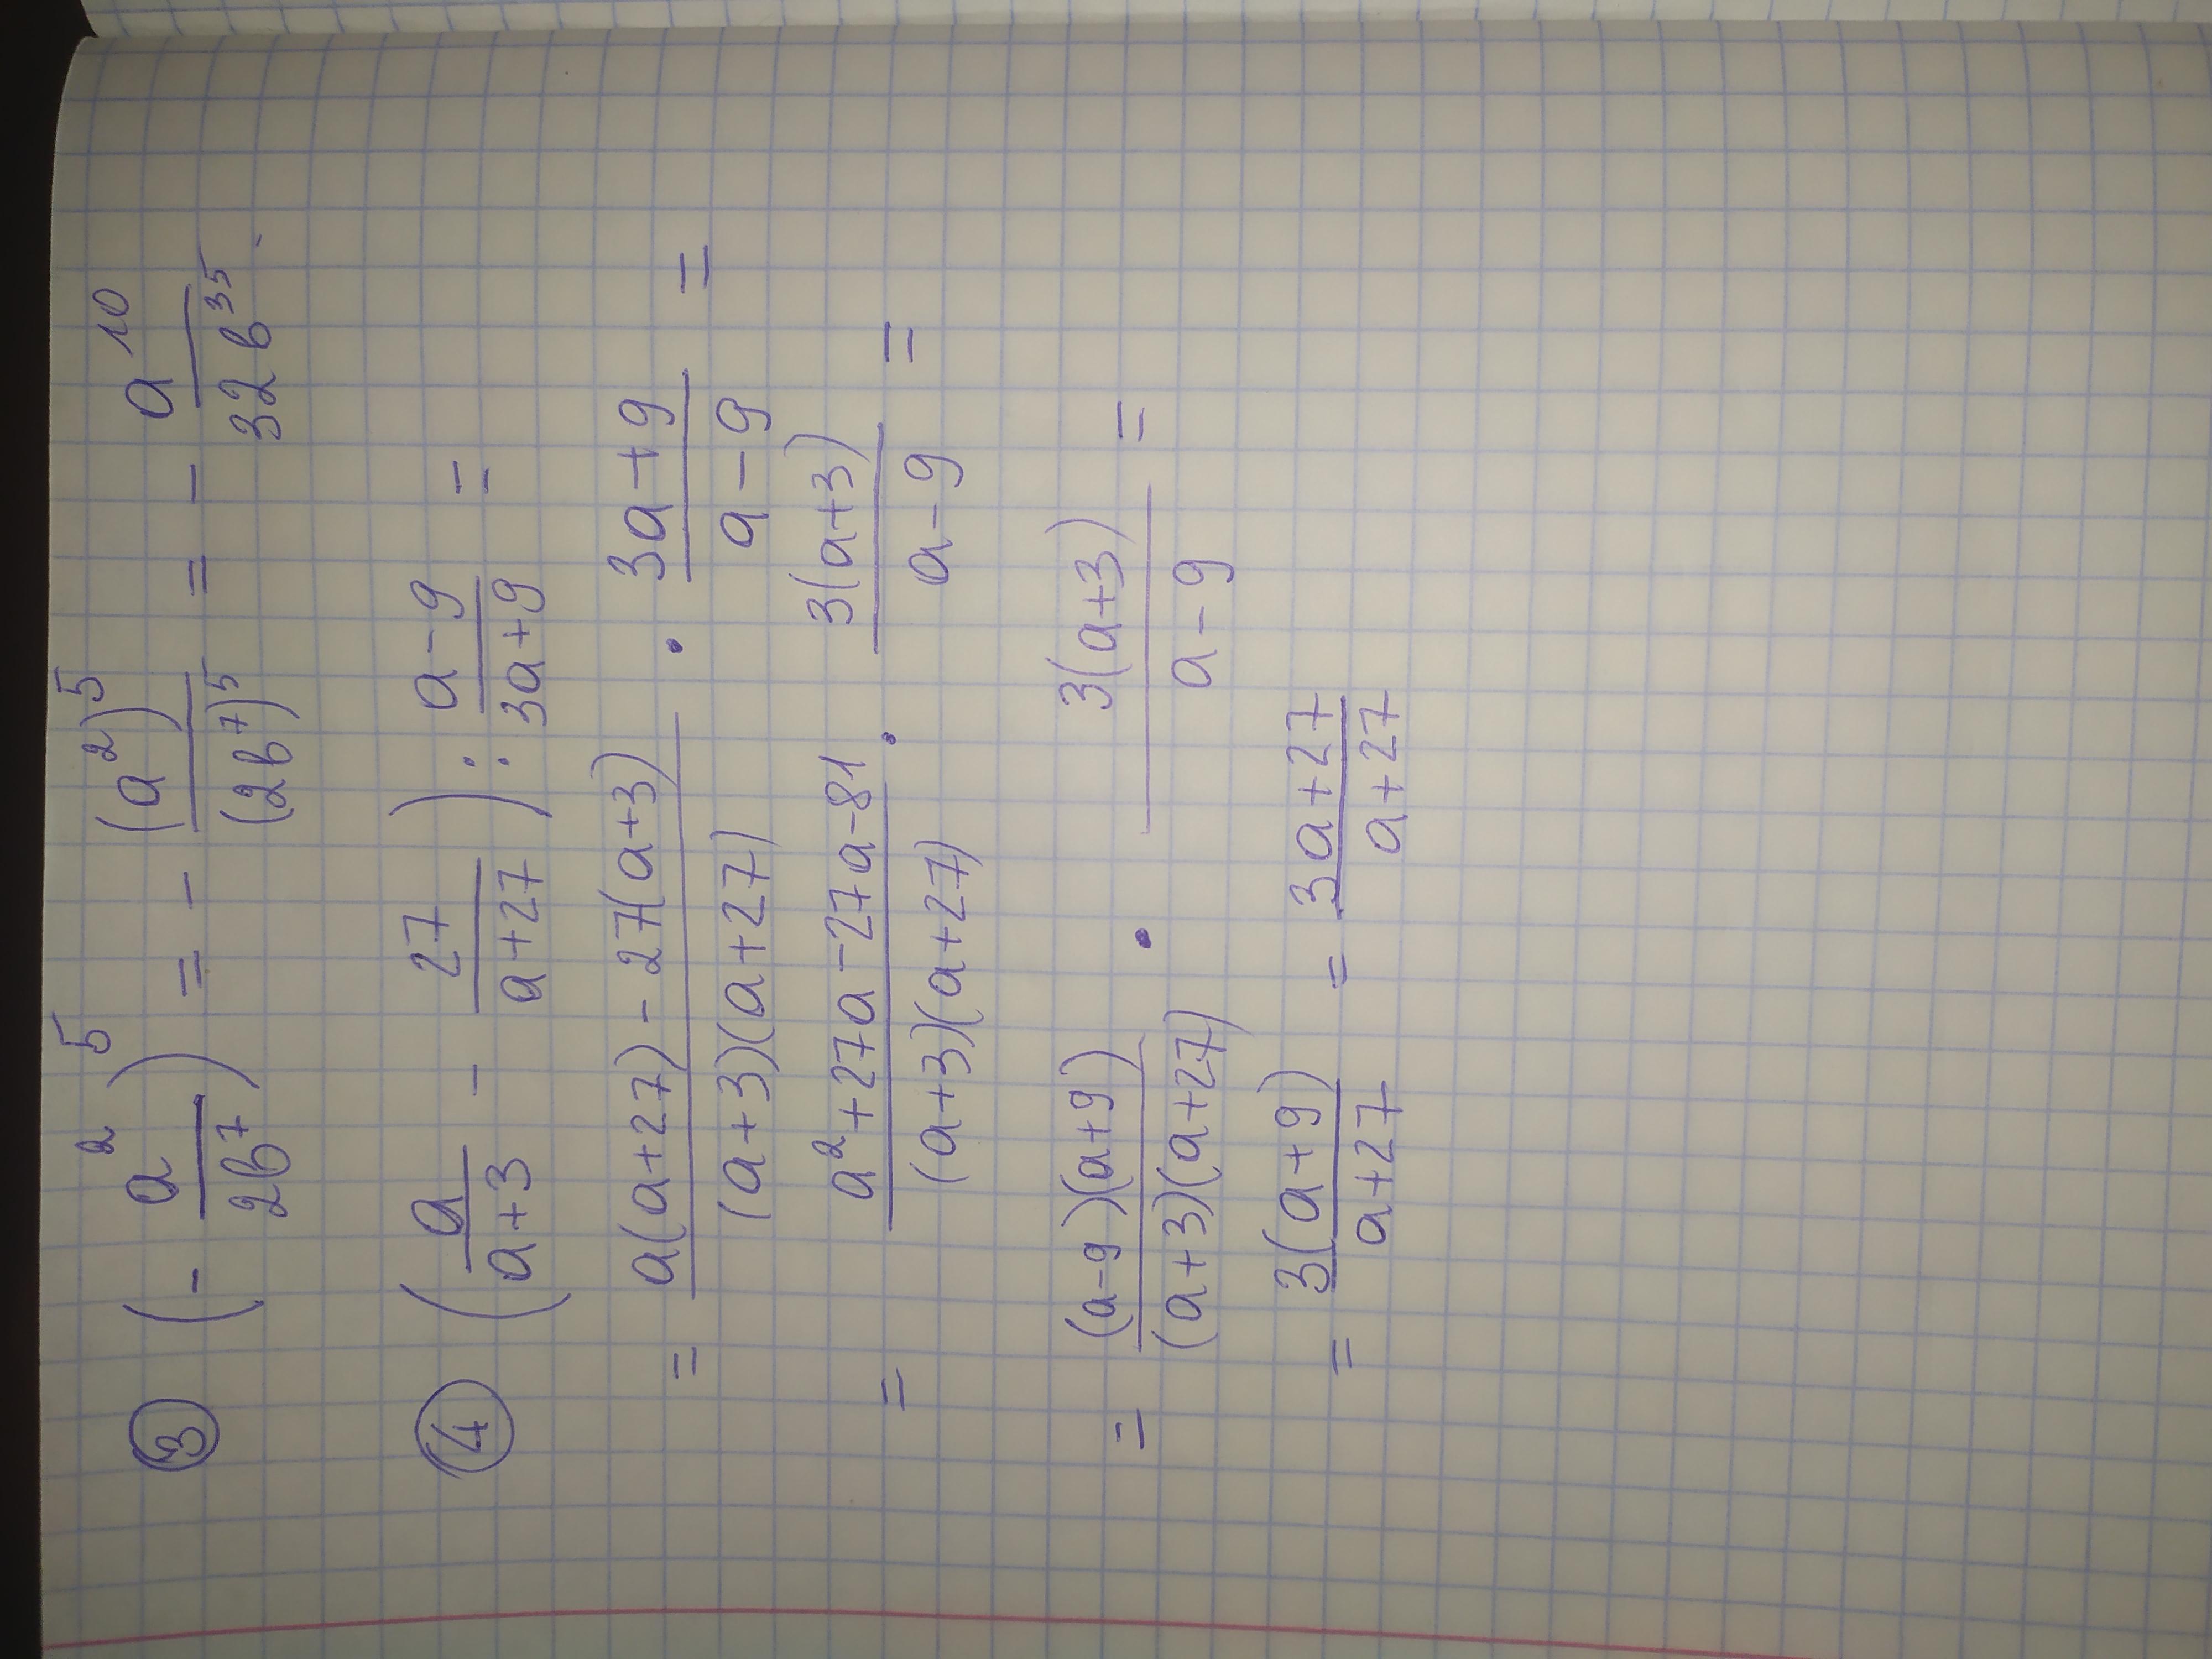 ③ (- a²/2b⁷)⁵ = - (a²)⁵/(2b⁷)⁵ = - a¹⁰/32b³⁵.
④ (a/a+3 - 27/a+27) : a-9/3a+9 =
= a(a+27) - 27(a+3)/(a+3)(a+27) · 3a+9/a-9 =
= a²+27a-27a-81/(a+3)(a+27) · 3(a+3)/a-9 =
= (a-9)(a+9)/(a+3)(a+27) · 3(a+3)/a-9 =
= 3(a+9)/a+27 = 3a+27/a+27